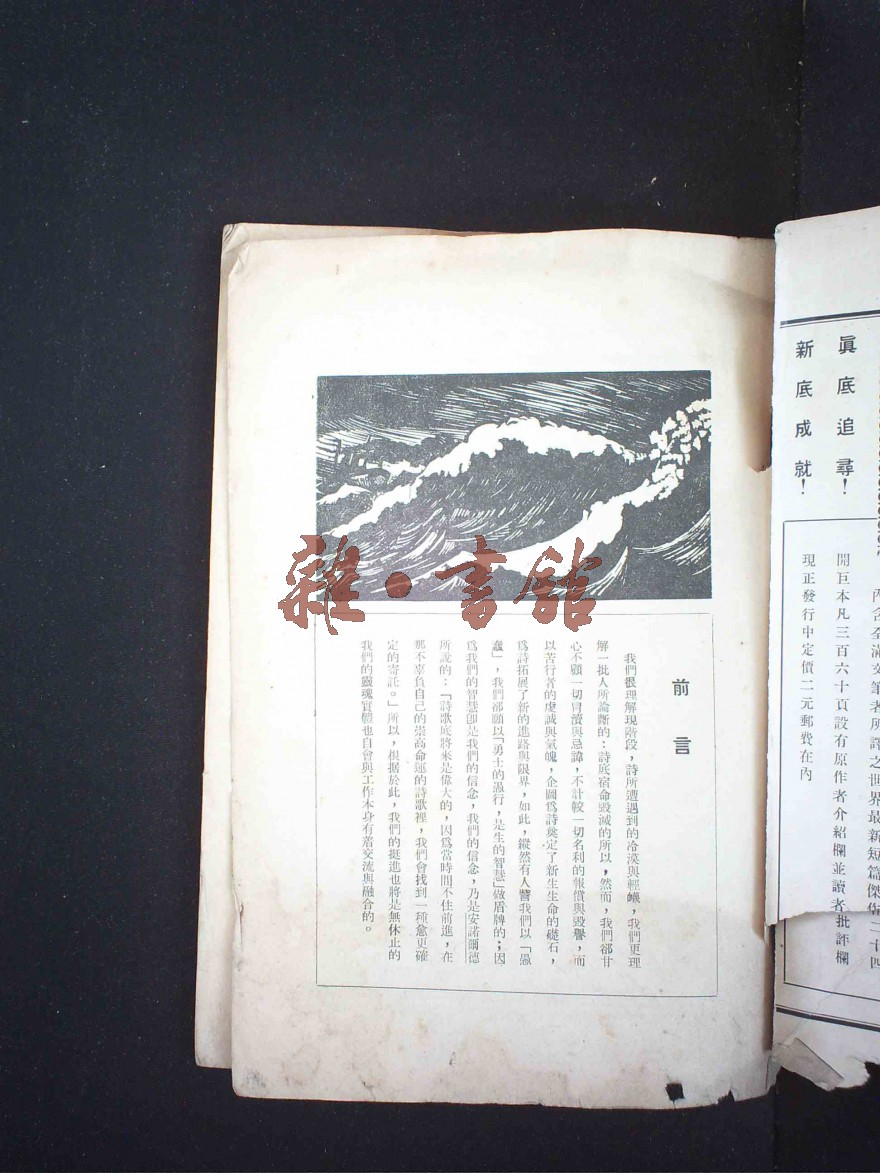 眞底追尋！
新底成就！
內含全滿文筆者所譯之世界最新短篇傑
開巨本凡三百六十頁設有原作者介紹欄並讀者批評欄
現正發行中定價二元郵費在內
雜·書館
前言
我們很理解現階段，詩所遭遇到的冷漠與輕蔑，我們更理
解一批人所論斷的：詩底宿命毀滅的所以，然而，我們卻甘
心不顧一切冒瀆與忌諱，不計較一切名利的報償與毀譽，而
以苦行者的虔誠與氣魄，企圖爲詩奠定了新生生命的礎石，
爲詩拓展了新的進路與限界，如此，縱然有人譬我們以「愚
蠢」，我們都願以「勇士的愚行，是生的智慧」做盾牌的；因
爲我們的智慧卽是我們的信念，我們的信念，乃是安諾爾德
所說的：「詩歌底將來是偉大的，因爲當時間不住前進，在
那不辜負自己的崇高命運的詩歌裡，我們會找到一種愈更確
定的寄託。」所以，根據於此，我們的挺進也將是無休止的
我們的靈魂實體也自會與工作本身有着交流與融合的。